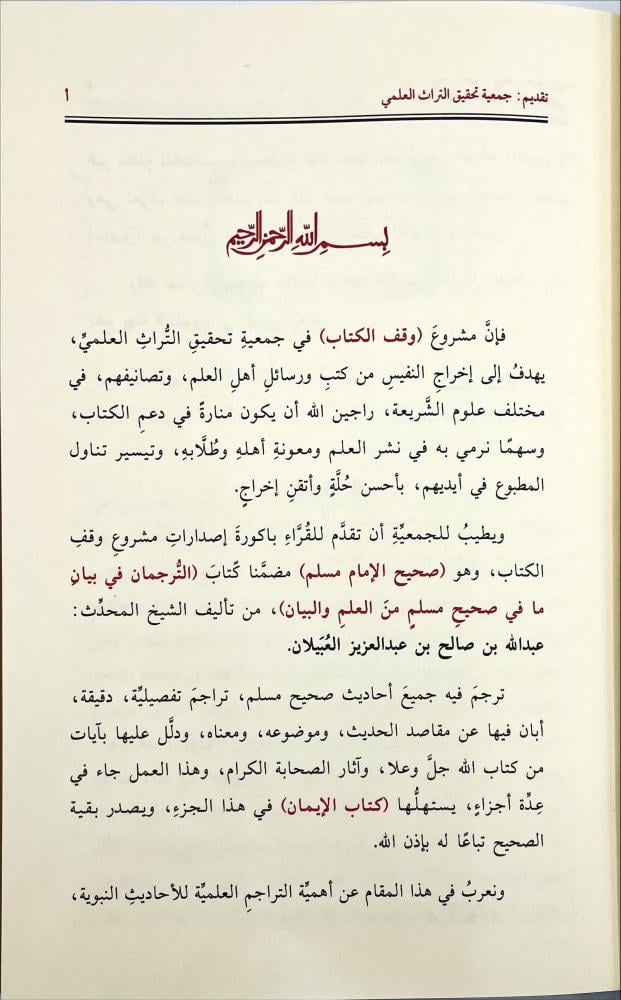 تقديم: جمعية تحقيق التراث العلمي
أ
بِسْمِ اللهِ الرَّحْمَنِ الرَّحِيمِ
فإنَّ مشروعَ (وقف الكتاب) في جمعيةِ تحقيقِ التُّراثِ العلميِّ،
يهدفُ إلى إخراجِ النفيسِ من كتبِ ورسائلِ أهلِ العلم، وتصانيفهم، في
مختلف علوم الشَّريعة، راجين الله أن يكون منارةً في دعمِ الكتاب،
وسهمًا نرمي به في نشر العلم ومعونة أهلهِ وطُلَّابهِ، وتيسير تناول
المطبوع في أيديهم، بأحسن حُلَّةٍ وأتقنِ إخراجٍ.
ويطيبُ للجمعيِّةِ أن تقدَّم للقُرَّاءِ باكورةَ إصداراتِ مشروعِ وقفِ
الكتاب، وهو (صحيح الإمام مسلم) مضمَّنا كتابَ (التُّرجمان في بيانِ
ما في صحيحِ مسلمٍ منَ العلمِ والبيان)، من تأليف الشيخ المحدِّث:
عبدالله بن صالح بن عبدالعزيز العُبَيلان.
ترجمَ فيه جميعَ أحاديث صحيح مسلم، تراجمَ تفصيليِّة، دقيقة،
أبان فيها عن مقاصد الحديث، وموضوعه، ومعناه، ودلَّل عليها بآيات
من كتاب الله جلَّ وعلا، وآثار الصحابة الكرام، وهذا العمل جاء في
عِدَّة أجزاءٍ، يستهلُّها (كتاب الإيمان) في هذا الجزءِ، ويصدر بقية
الصحيح تباعًا له بإذن الله.
ونعربُ في هذا المقام عن أهميِّة التراجم العلميِّة للأحاديثِ النبوية،